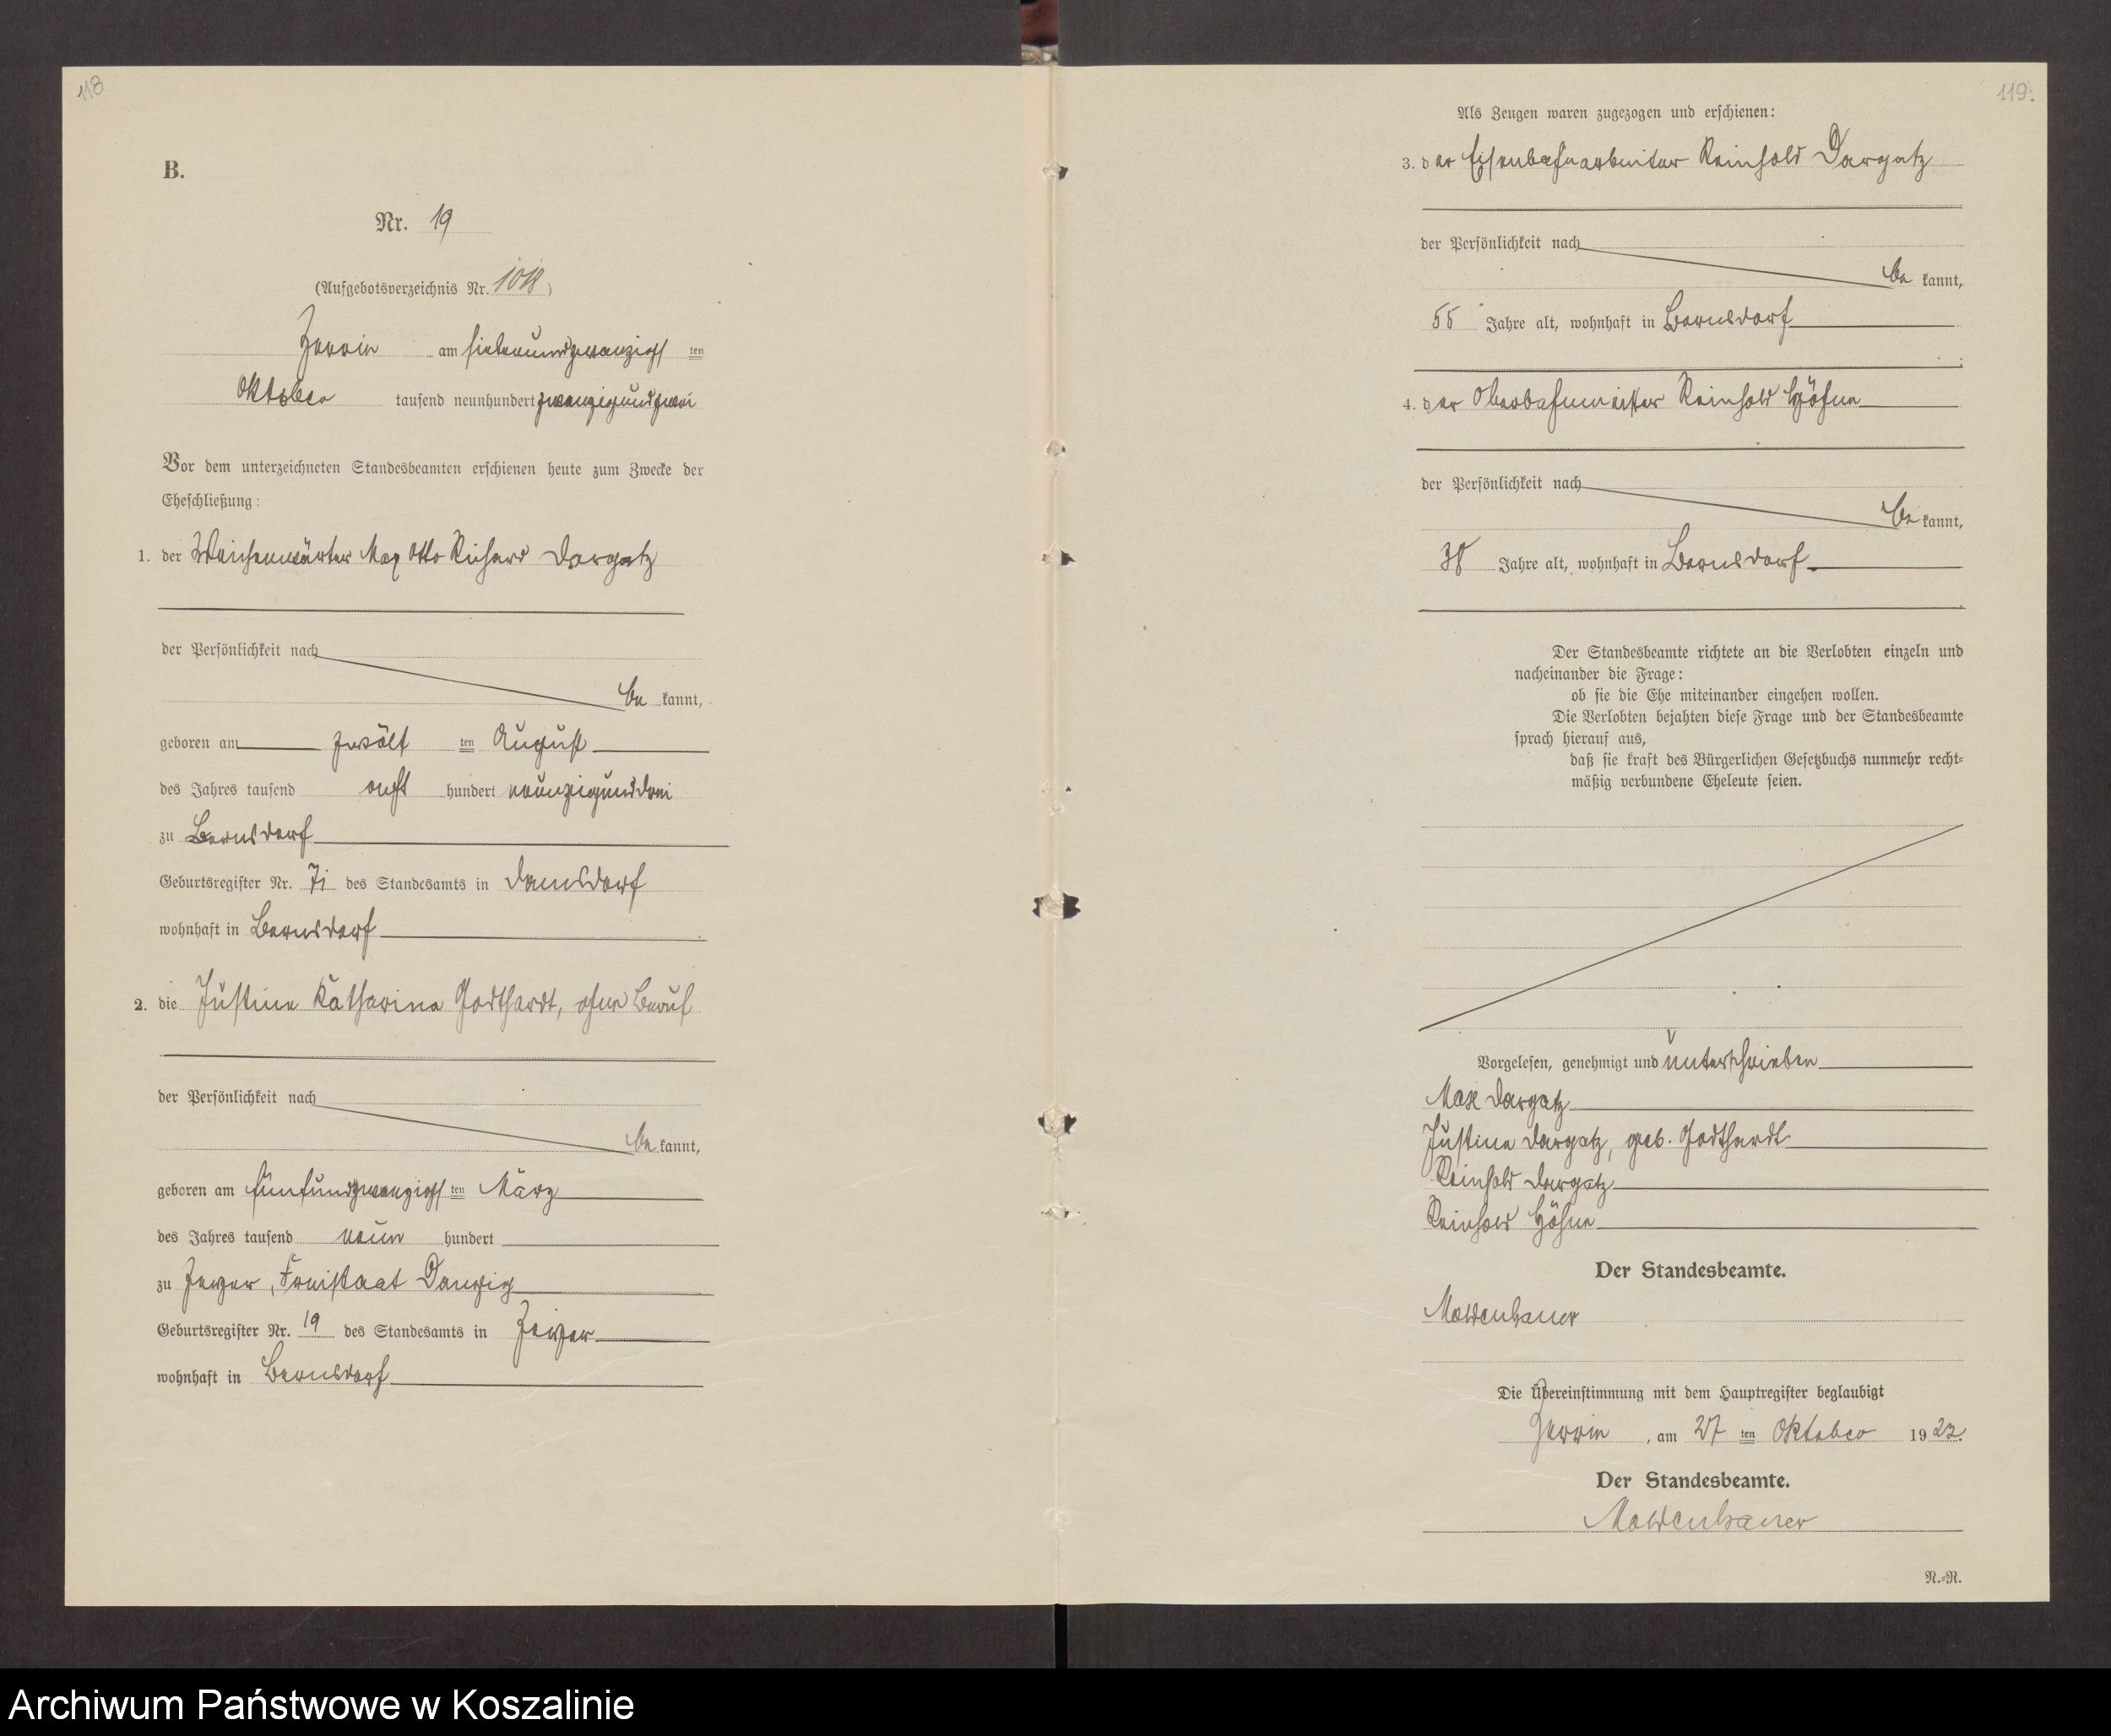 118
B.
Nr. 19
(Aufgebotsverzeichnis Nr. )
Zerrin am siebenundzwanzigs ten
Oktober tausend neunhundert zwanzigundzwei
Vor dem unterzeichneten Standesbeamten erschienen heute zum Zwecke der
Eheschließung:
1. der Weichenwärter Max Otto Richard Dargatz
der Persönlichkeit nach
be kannt,
geboren am zwölf ten August
des Jahres tausend acht hundert neunzigunddrei
zu Bernsdorf
Geburtsregister Nr. 71 des Standesamts in Damsdorf
wohnhaft in Bernsdorf
2. die Justine Katharina Godthardt, ohne Beruf
der Persönlichkeit nach
be kannt,
geboren am fünfundzwanzigs ten März
des Jahres tausend neun hundert
zu Zeyer, Freistaat Danzig
Geburtsregister Nr. 19 des Standesamts in Zeyer
wohnhaft in Bernsdorf
119.
Als Zeugen waren zugezogen und erschienen:
3. der Eisenbahnarbeiter Reinhold Dargatz
der Persönlichkeit nach
be kannt,
55 Jahre alt, wohnhaft in Bernsdorf
4. der Oberbahnmeister Reinhold Höhne
der Persönlichkeit nach
be kannt,
38 Jahre alt, wohnhaft in Bernsdorf
Der Standesbeamte richtete an die Verlobten einzeln und
nacheinander die Frage:
ob sie die Ehe miteinander eingehen wollen.
Die Verlobten bejahten diese Frage und der Standesbeamte
sprach hierauf aus,
daß sie kraft des Bürgerlichen Gesetzbuchs nunmehr recht-
mäßig verbundene Eheleute seien.
Vorgelesen, genehmigt und unterschrieben
Max Dargatz
Justine Dargatz, geb. Godthardt
Reinhold Dargatz
Reinhold Höhne
Der Standesbeamte.
Moldenhauer
Die Übereinstimmung mit dem Hauptregister beglaubigt
Zerrin, am 27 ten Oktober 1922.
Der Standesbeamte.
Moldenhauer
N.-R.
Archiwum Państwowe w Koszalinie